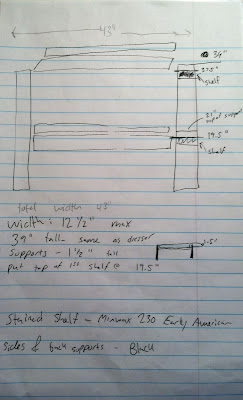 43"
39"
37.5"
shelf
21"
top of support
19.5"
shelf
total width 43"
width: 12 1/2" max
39" tall - same as dresser
supports - 1 1/2" tall
put top of 1st shelf @ 19.5"
Stained Shelf - Minwax 230 Early American
Sides & back supports - Black